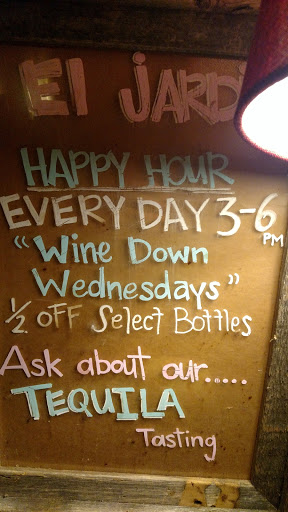 El JARD
HAPPY HOUR
EVERY DAY 3-6
PM
"Wine Down
Wednesdays"
½ OFF Select Bottles
Ask about our.....
TEQUILA
Tasting